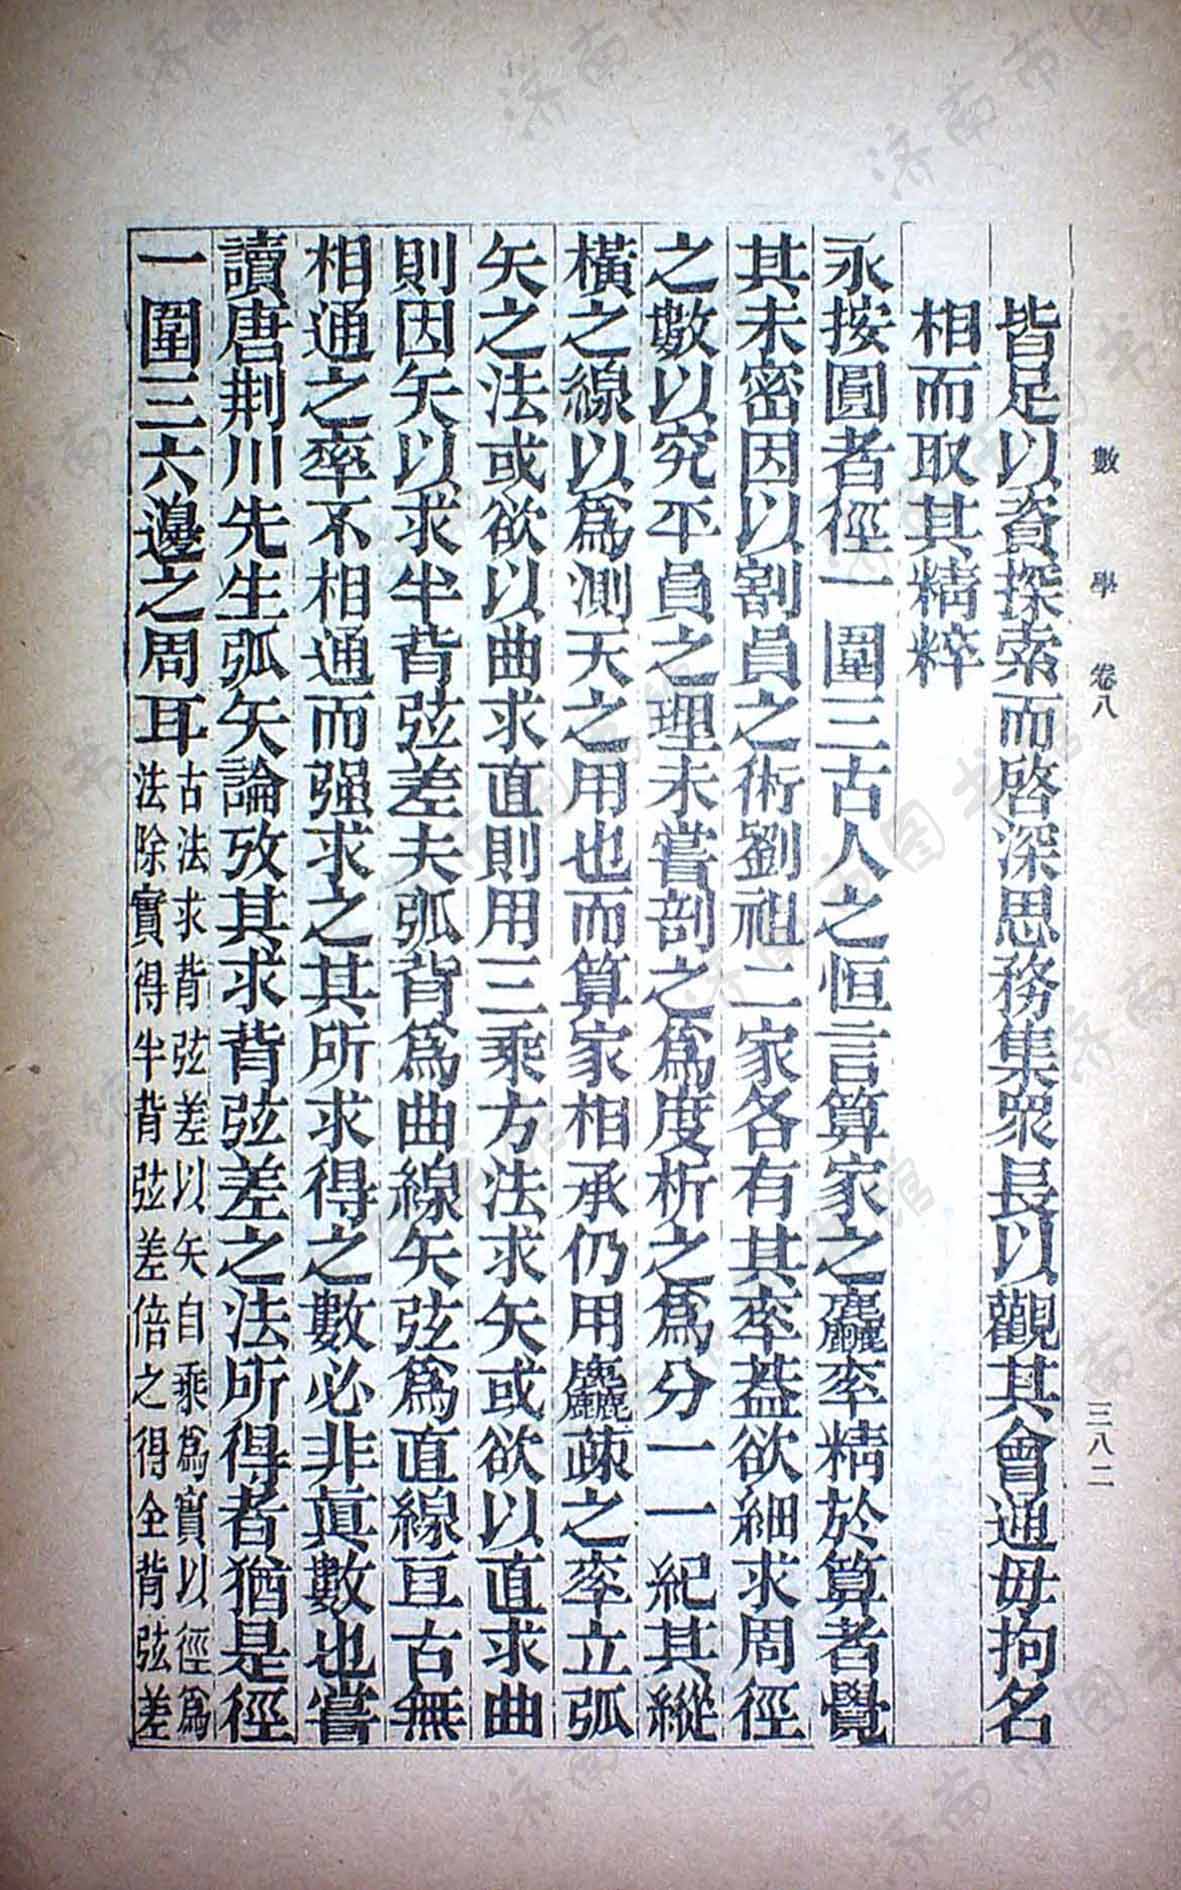 數學 卷八
三八二
皆足以資探索而啓深思務集衆長以觀其會通毋拘名
相而取其精粹
永按圓者徑一圍三古人之恒言算家之麤率精於算者覺
其未密因以割員之術劉祖二家各有其率葢欲細求周徑
之數以究平員之理未嘗剖之爲度析之爲分一一紀其縱
橫之線以爲測天之用也而算家相承仍用麤疎之率立弧
矢之法或欲以曲求直則用三乘方法求矢或欲以直求曲
則因矢以求半背弦差夫弧背爲曲線矢弦爲直線亘古無
相通之率不相通而强求之其所求得之數必非眞數也嘗
讀唐荆川先生弧矢論攷其求背弦差之法所得者猶是徑
一圍三六邊之周耳
古法求背弦差以矢自乘爲實以徑爲
法除實得半背弦差倍之得全背弦差